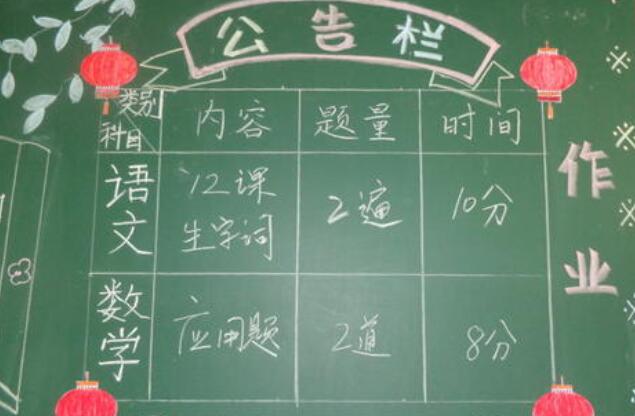 公告栏
类别
科目
内容 题量 时间
语文
12课
生字词
2遍
10分
数学
应用题
2道
8分
作业